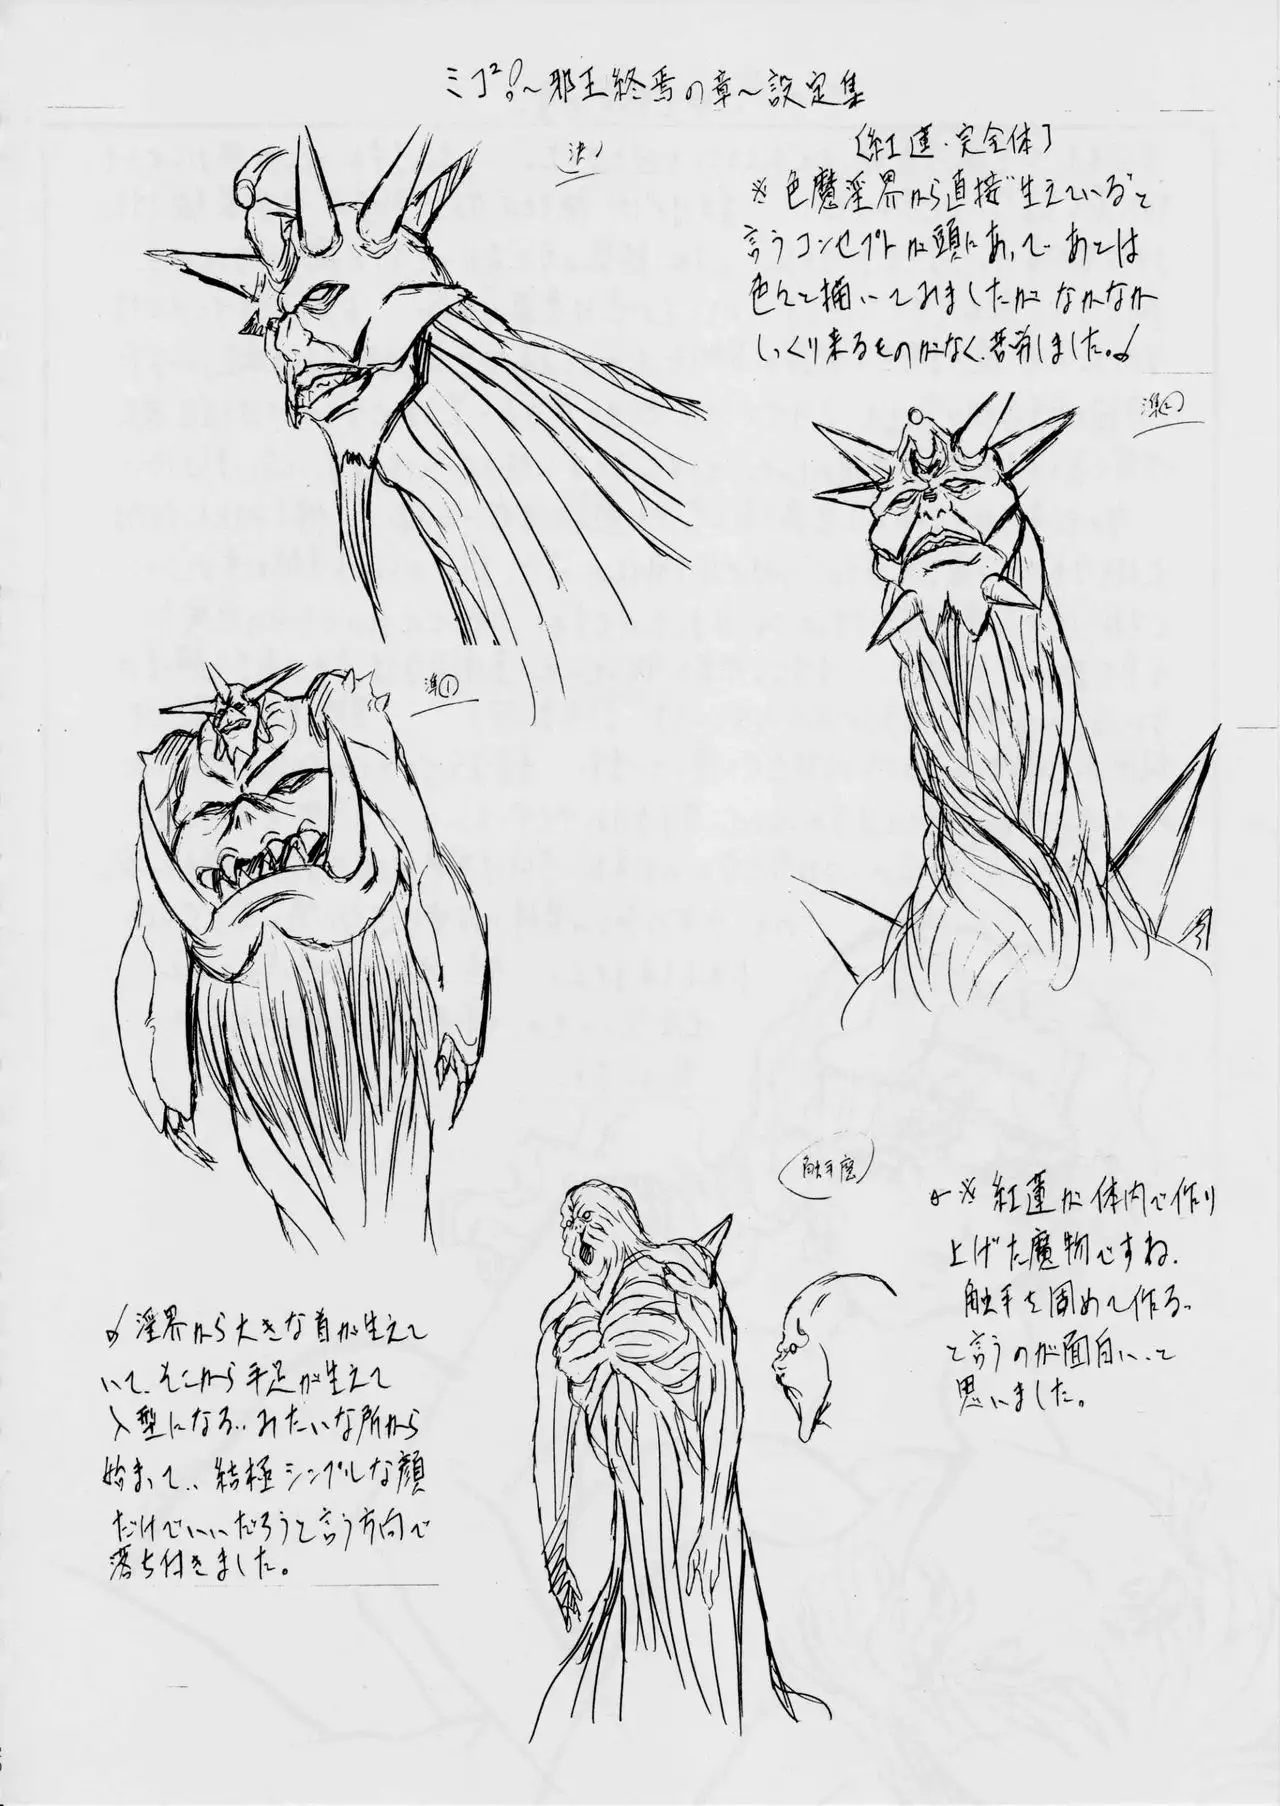 ミコ²!～邪王終焉の章～設定集
[紅蓮・完全体]
※色魔淫界から直接"生えている"と
言うコンセプトが頭にあって、あとは
色んな描いてみましたがなかなか
しっくり来るものがなく、苦労しました。
決!
準②
準①
触手魔
※紅蓮が体内で作り
上げた魔物ですね、
触手を固めて作る、
と言うのが面白い、と
思いました。
淫界から大きな首が生えて
いて、そこから手足が生えて
人型になる、、みたいな所から
始まって、、結極シンプルな顔
だけでいいだろうと言う方向で
落ち付きました。